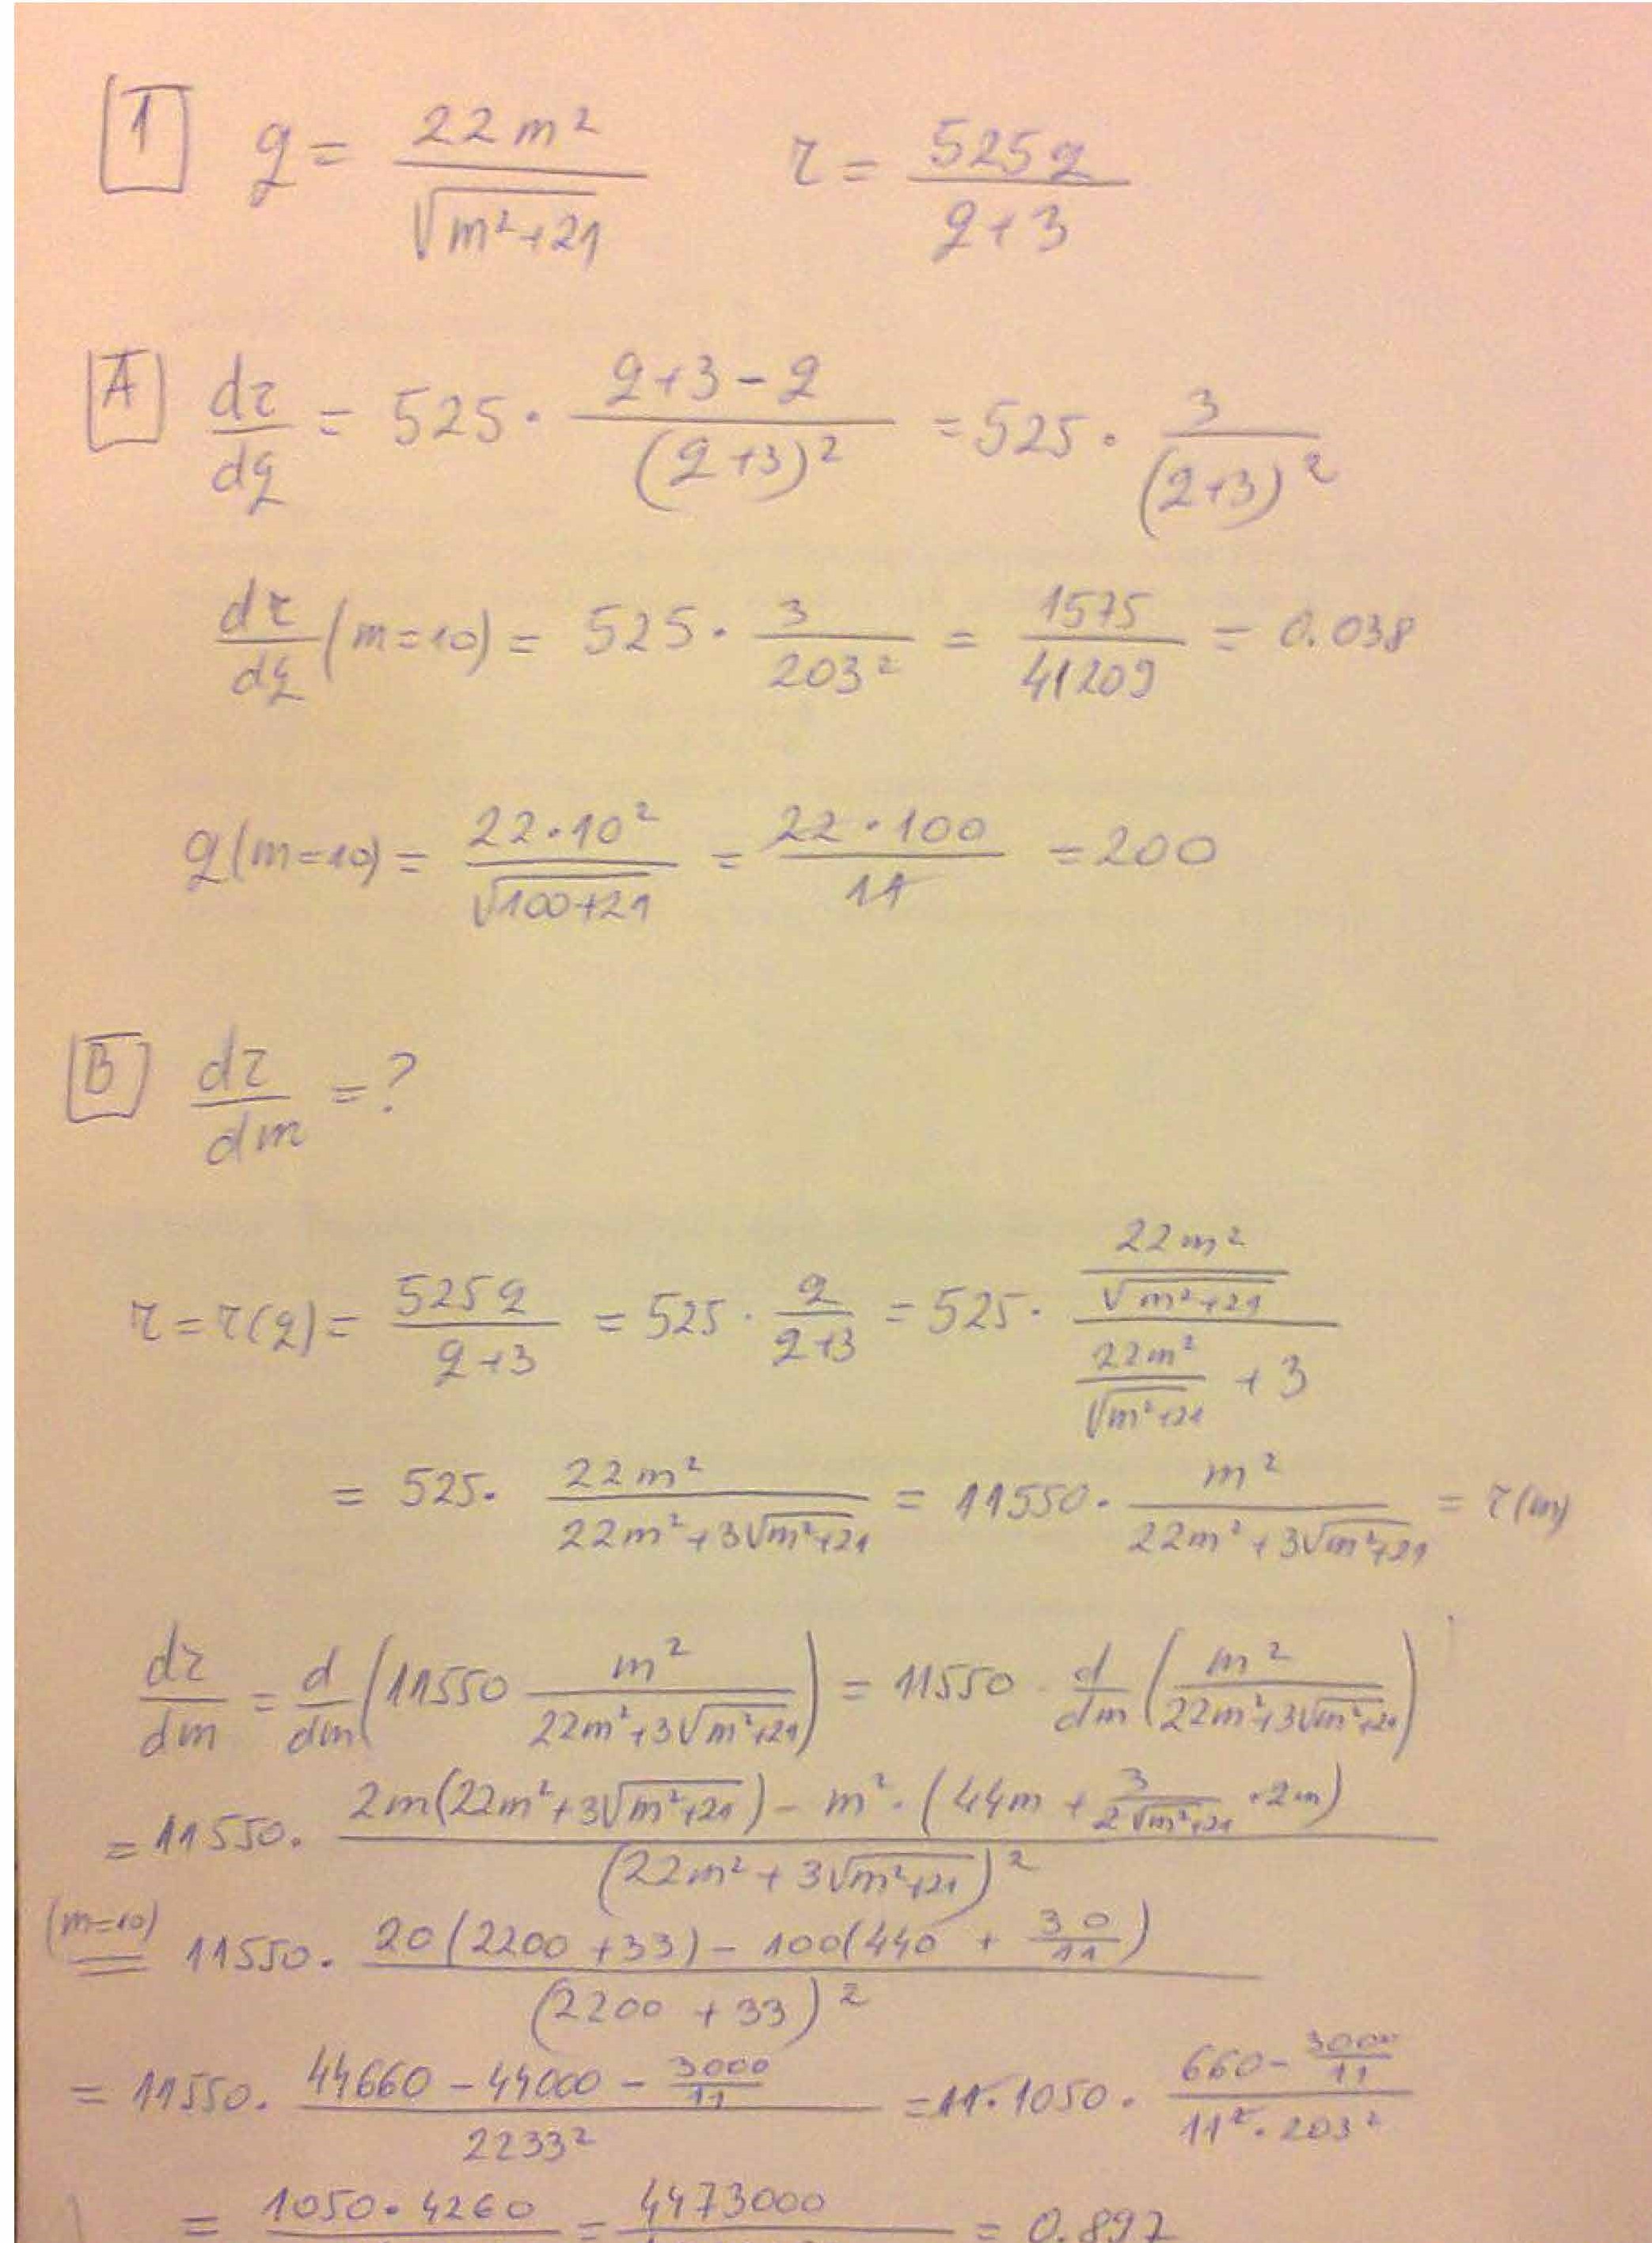 1 q = 22m² / √(m²+21) r = 525q / (q+3)
A dr/dq = 525 · (q+3-q) / (q+3)² = 525 · 3 / (q+3)²
dr/dq (m=10) = 525 · 3 / 203² = 1575 / 41209 = 0.038
q(m=10) = 22·10² / √(100+21) = 22·100 / 11 = 200
B dr/dm = ?
r = r(q) = 525q / (q+3) = 525 · q / (q+3) = 525 · (22m² / √(m²+21)) / (22m² / √(m²+21) + 3)
= 525 · 22m² / (22m² + 3√(m²+21)) = 11550 · m² / (22m² + 3√(m²+21)) = r(m)
dr/dm = d/dm (11550 m² / (22m² + 3√(m²+21))) = 11550 · d/dm (m² / (22m² + 3√(m²+21)))
= 11550 · (2m(22m² + 3√(m²+21)) - m² · (44m + 3 / (2√(m²+21)) · 2m)) / (22m² + 3√(m²+21))²
(m=10) = 11550 · (20(2200 + 33) - 100(440 + 30/11)) / (2200 + 33)²
= 11550 · (44660 - 44000 - 3000/11) / 2233² = 11·1050 · (660 - 3000/11) / (11² · 203²)
= 1050·4260 = 4473000 = 0.897